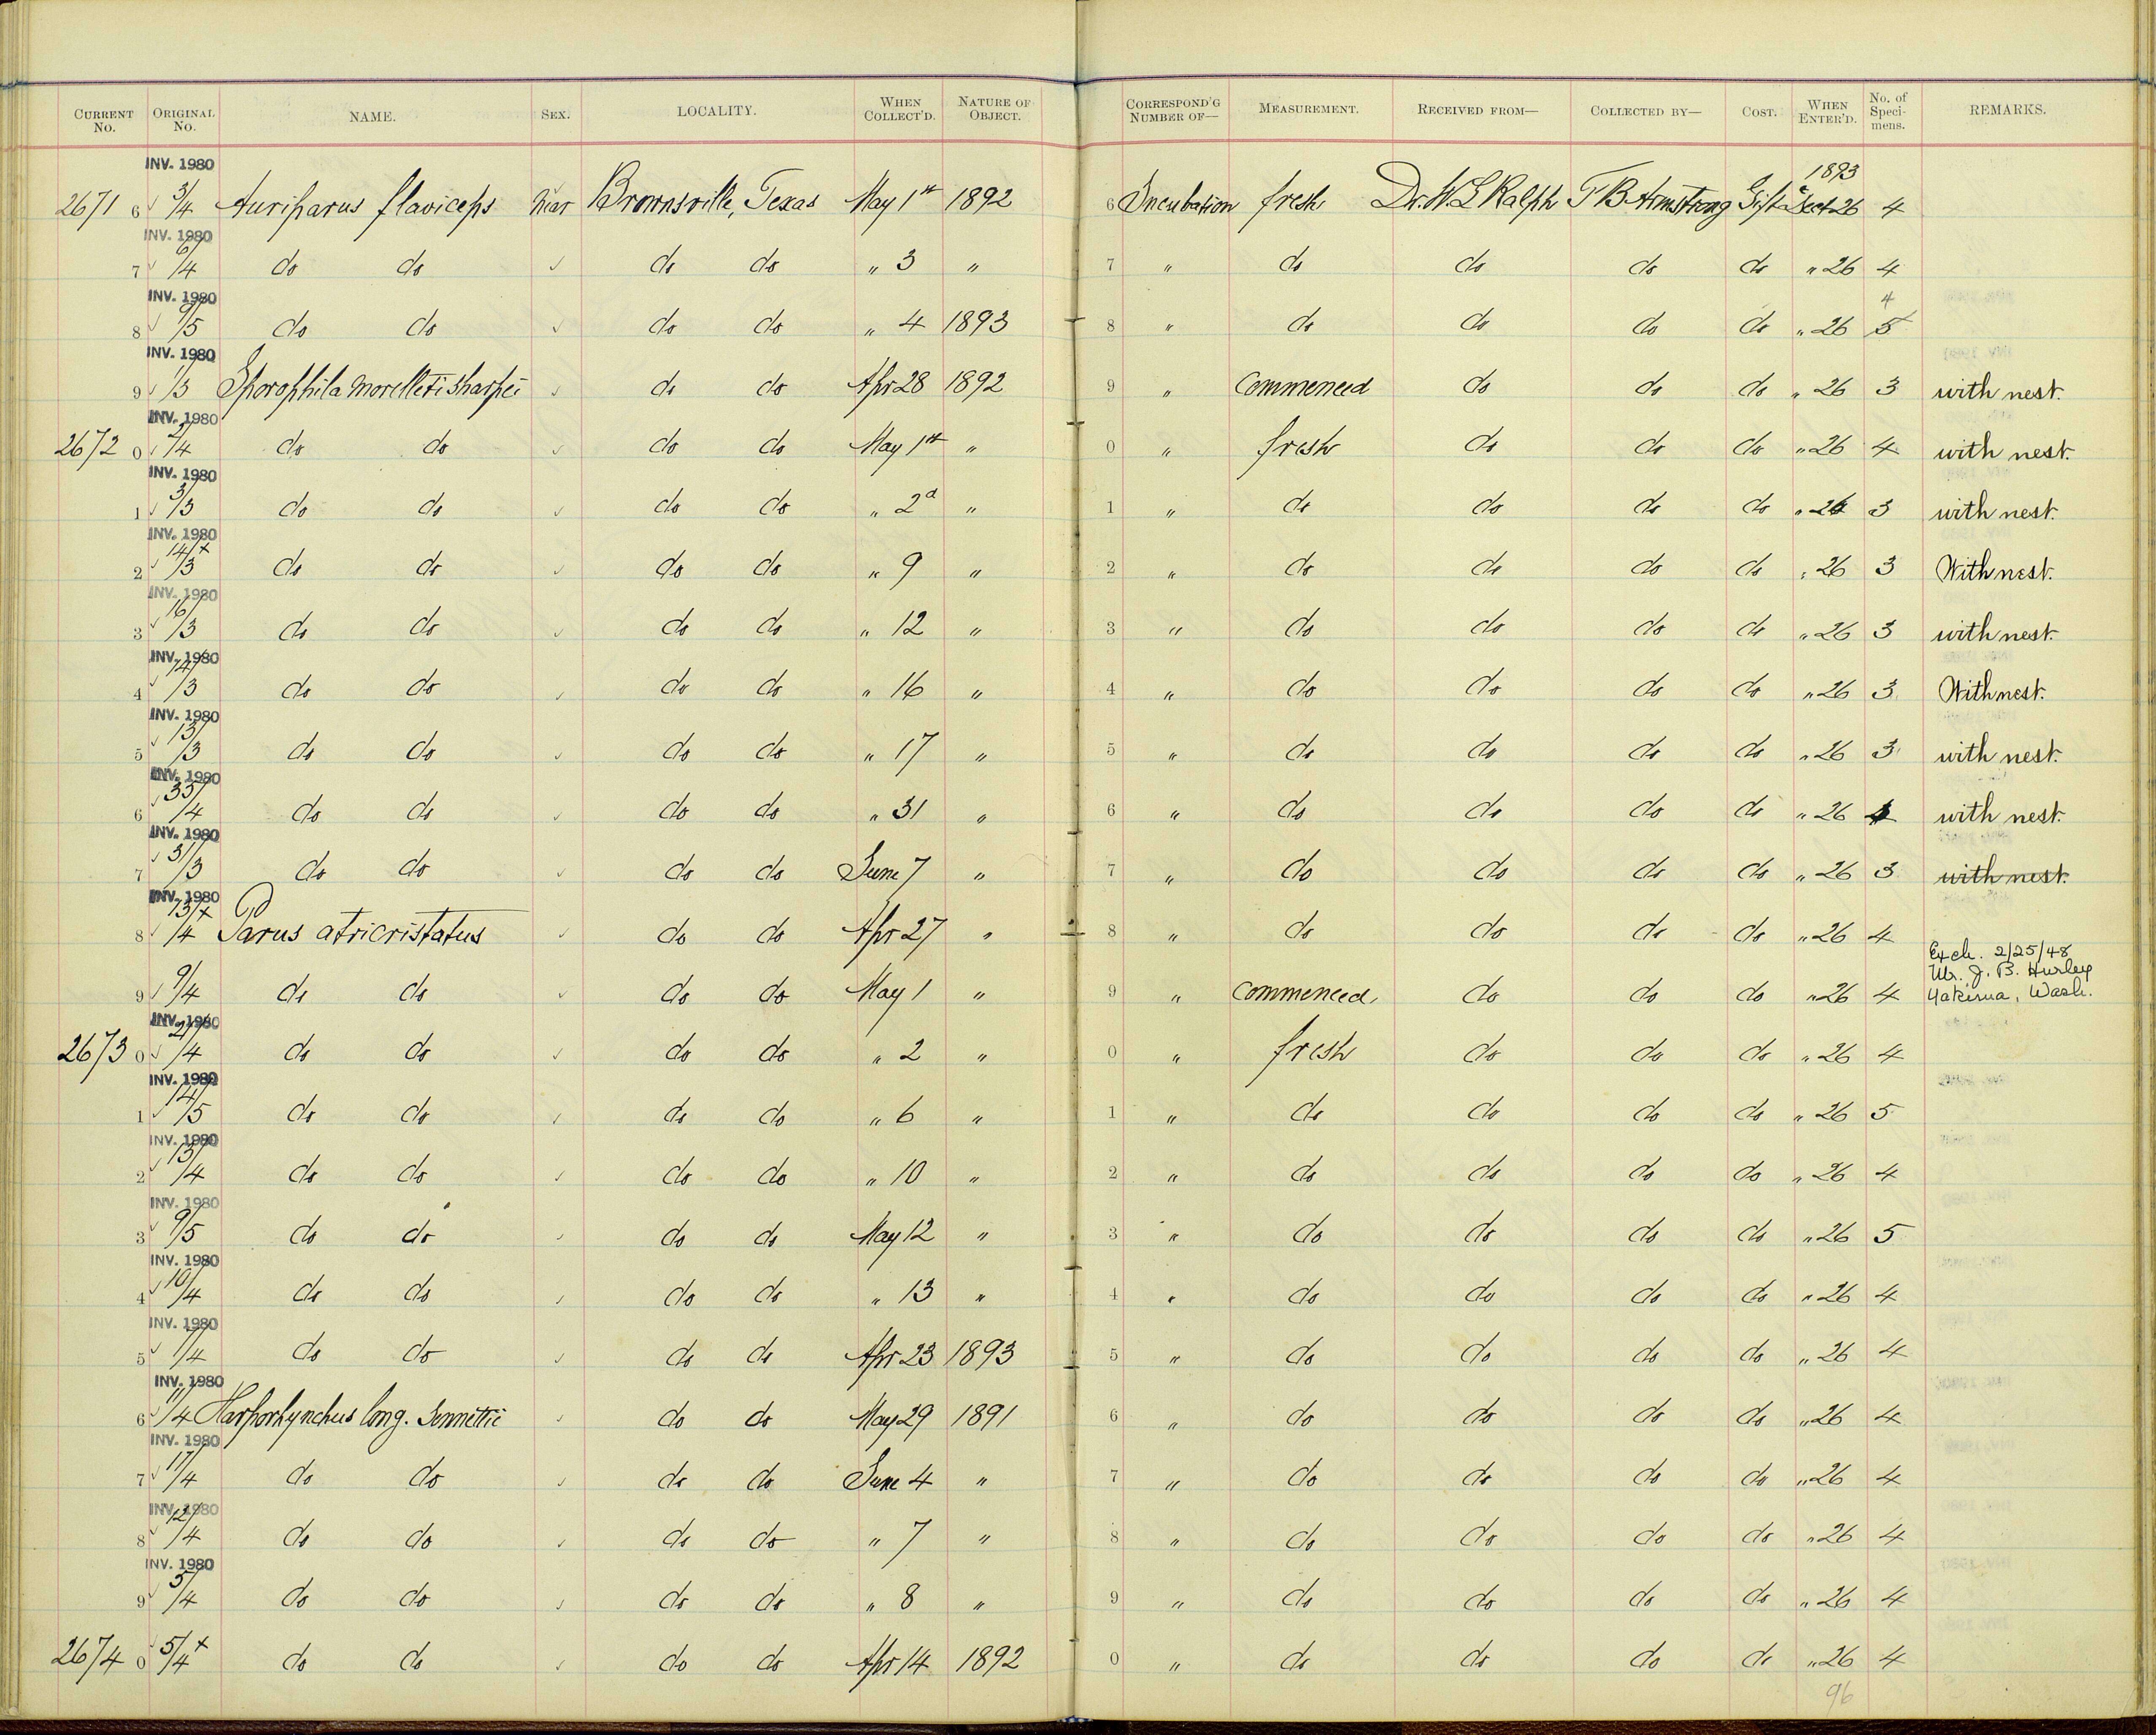 CURRENT No. ORIGINAL No. NAME. SEX. LOCALITY. WHEN COLLECT'D. NATURE OF OBJECT. CORRESPOND'G NUMBER OF— MEASUREMENT. RECEIVED FROM— COLLECTED BY— COST. WHEN ENTER'D. No. of Specimens. REMARKS.
INV. 1980 1893
2671 6 ✓ 3/4 Auriparus flaviceps Brownsville, Texas May 1st 1892 6 Incubation fresh Dr. W. L Ralph F B Armstrong Gift Dec 26 4
INV. 1980
7 ✓ 6/4 do do ✓ do do " 3 " 7 " do do do do " 26 4
INV. 1980 4
8 ✓ 9/5 do do ✓ do do " 4 1893 8 " do do do do " 26 5
INV. 1980
9 ✓ 1/3 Sporophila morelleti sharpei ✓ do do Apr 28 1892 9 " Commenced do do do " 26 3 with nest.
INV. 1980
2672 0 ✓ 2/4 do do ✓ do do May 1st " 0 " fresh do do do " 26 4 with nest.
INV. 1980
1 ✓ 3/3 do do ✓ do do " 2d " 1 " do do do do " 26 3 with nest.
INV. 1980
2 ✓ 14/3 + do do ✓ do do " 9 " 2 " do do do do " 26 3 With nest.
INV. 1980
3 ✓ 16/3 do do ✓ do do " 12 " 3 " do do do do " 26 3 with nest.
INV. 1980
4 ✓ 14/3 do do ✓ do do " 16 " 4 " do do do do " 26 3 With nest.
INV. 1980
5 ✓ 13/3 do do ✓ do do " 17 " 5 " do do do do " 26 3 with nest.
INV. 1980
6 ✓ 33/4 do do ✓ do do " 31 " 6 " do do do do " 26 4 with nest.
INV. 1980
7 ✓ 31/3 do do ✓ do do June 7 " 7 " do do do do " 26 3 with nest.
INV. 1980
8 ✓ 13/4 + Parus atricristatus ✓ do do Apr 27 " 8 " do do do do " 26 4
Exch. 2/25/48
Mr. J. B. Hurley
9 ✓ 9/4 do do ✓ do do May 1 " 9 " Commenced, do do do " 26 4 Yakima, Wash.
INV. 1980
2673 0 ✓ 21/4 do do ✓ do do " 2 " 0 " fresh do do do " 26 4
INV. 1980
1 ✓ 14/5 do do ✓ do do " 6 " 1 " do do do do " 26 5
INV. 1980
2 ✓ 13/4 do do ✓ do do " 10 " 2 " do do do do " 26 4
INV. 1980
3 ✓ 9/5 do do ✓ do do May 12 " 3 " do do do do " 26 5
INV. 1980
4 ✓ 10/4 do do ✓ do do " 13 " 4 " do do do do " 26 4
INV. 1980
5 ✓ 1/4 do do ✓ do do Apr 23 1893 5 " do do do do " 26 4
INV. 1980
6 ✓ 11/4 Harporhynchus long. Sennettii ✓ do do May 29 1891 6 " do do do do " 26 4
INV. 1980
7 ✓ 17/4 do do ✓ do do June 4 " 7 " do do do do " 26 4
INV. 1980
8 ✓ 12/4 do do ✓ do do " 7 " 8 " do do do do " 26 4
INV. 1980
9 ✓ 5/4 do do ✓ do do " 8 " 9 " do do do do " 26 4
2674 0 ✓ 5/4 + do do ✓ do do Apr 14 1892 0 " do do do do " 26 4
96